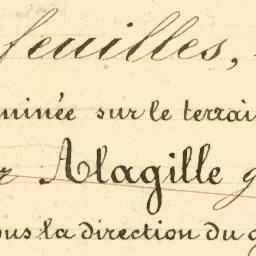 feuilles,
minée sur le terrai
r Alagille g
ous la direction du g